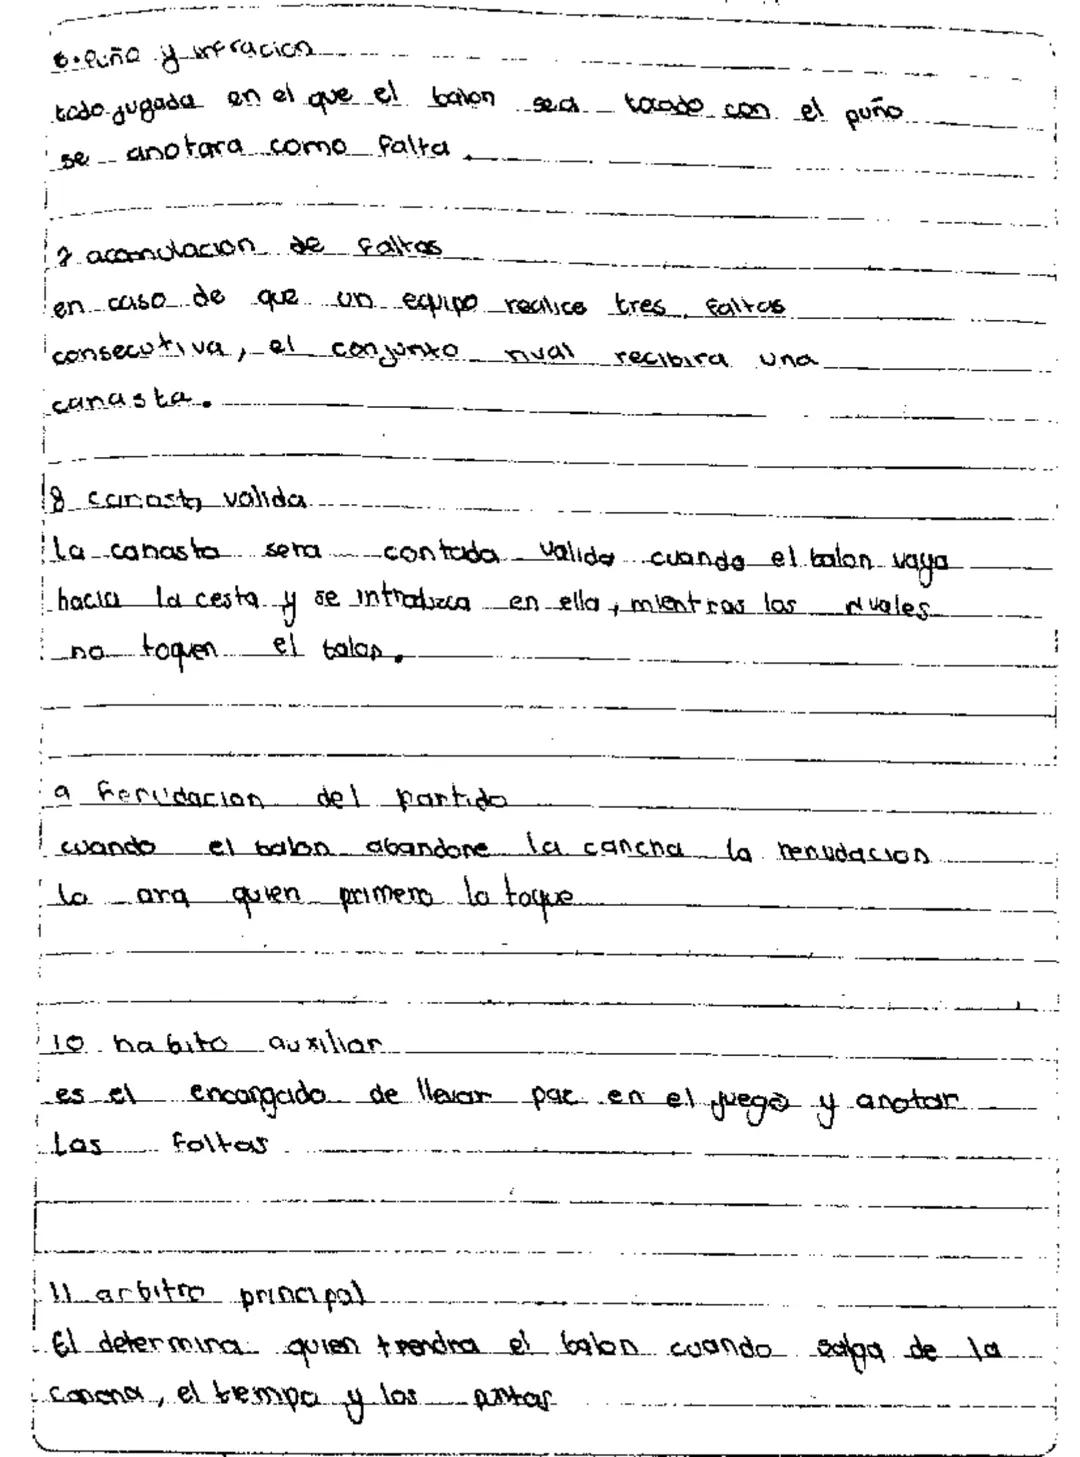 6. Puño y infracion
todo jugada en el que el balon sea tocado con el puño
se anotara como falta.
7 acomulacion de faltas
en caso de que un equipo realice tres faltas
consecutiva, el conjunto rival recibira una
canasta.
8 canasta valida
La canasta sera contada valida cuando el balon vaya
hacia la cesta y se introduzca en ella, mientras los rivales
no toquen el balon.
9 Renudacion del partido
cuando el balon abandone la cancha la renudacion
la ara quien primero la toque
10 habito auxiliar
es el encargado de llevar paz en el juego y anotar
las faltas
11 arbitro principal
El determina quien trendra el balon cuando salga de la
cancha, el tiempo y los